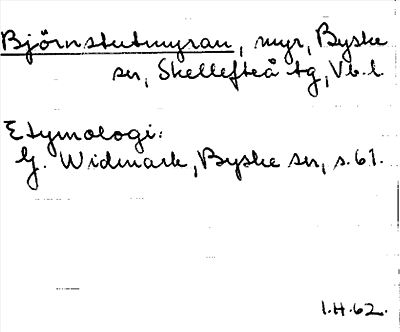 Björnstutmyran, myr, Byske
sn, Skellefteå tg, Vb. l.
Etymologi:
G. Widmark, Byske sn, s. 61.
I.H. 62.